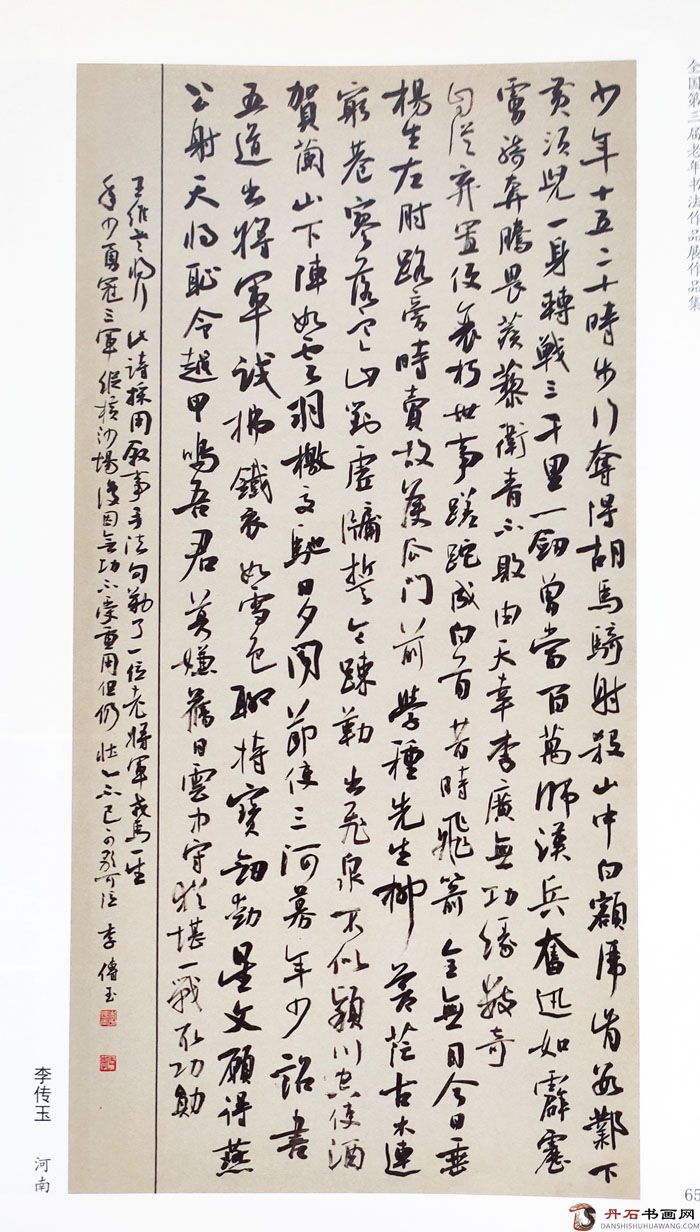 全国第三届老年书法作品展作品集
少年十五二十時步行奪得胡馬騎射殺山中白額虎肯數鄴下
黃須兒一身轉戰三千里一劍曾當百萬師漢兵奮迅如霹靂
虜騎奔騰畏蒺藜衛青不敗由天幸李廣無功緣數奇
自從棄置便衰朽世事蹉跎成白首昔時飛箭全無目今日垂
楊生左肘路旁時賣故侯瓜門前學種先生柳蒼茫古木連
窮巷寥落寒山對虛牖誓令疎勒出飛泉不似潁川空使酒
賀蘭山下陣如雲羽檄交馳日夕聞節使三河募年少詔書
五道出將軍試拂鐵衣如雪色聊持寶劍動星文願得燕
弓射天將恥令越甲鳴吾君莫嫌舊日雲中守猶堪一戰取功勛
王維老將行 此詩採用叙事手法勾勒了一位老將軍戎馬一生
年少勇冠三軍縱橫沙場後因無功不受重用但仍壯心不已 李傳玉
李传玉 河南
65
丹石书画网
DANSHISHUHUAWANG.COM